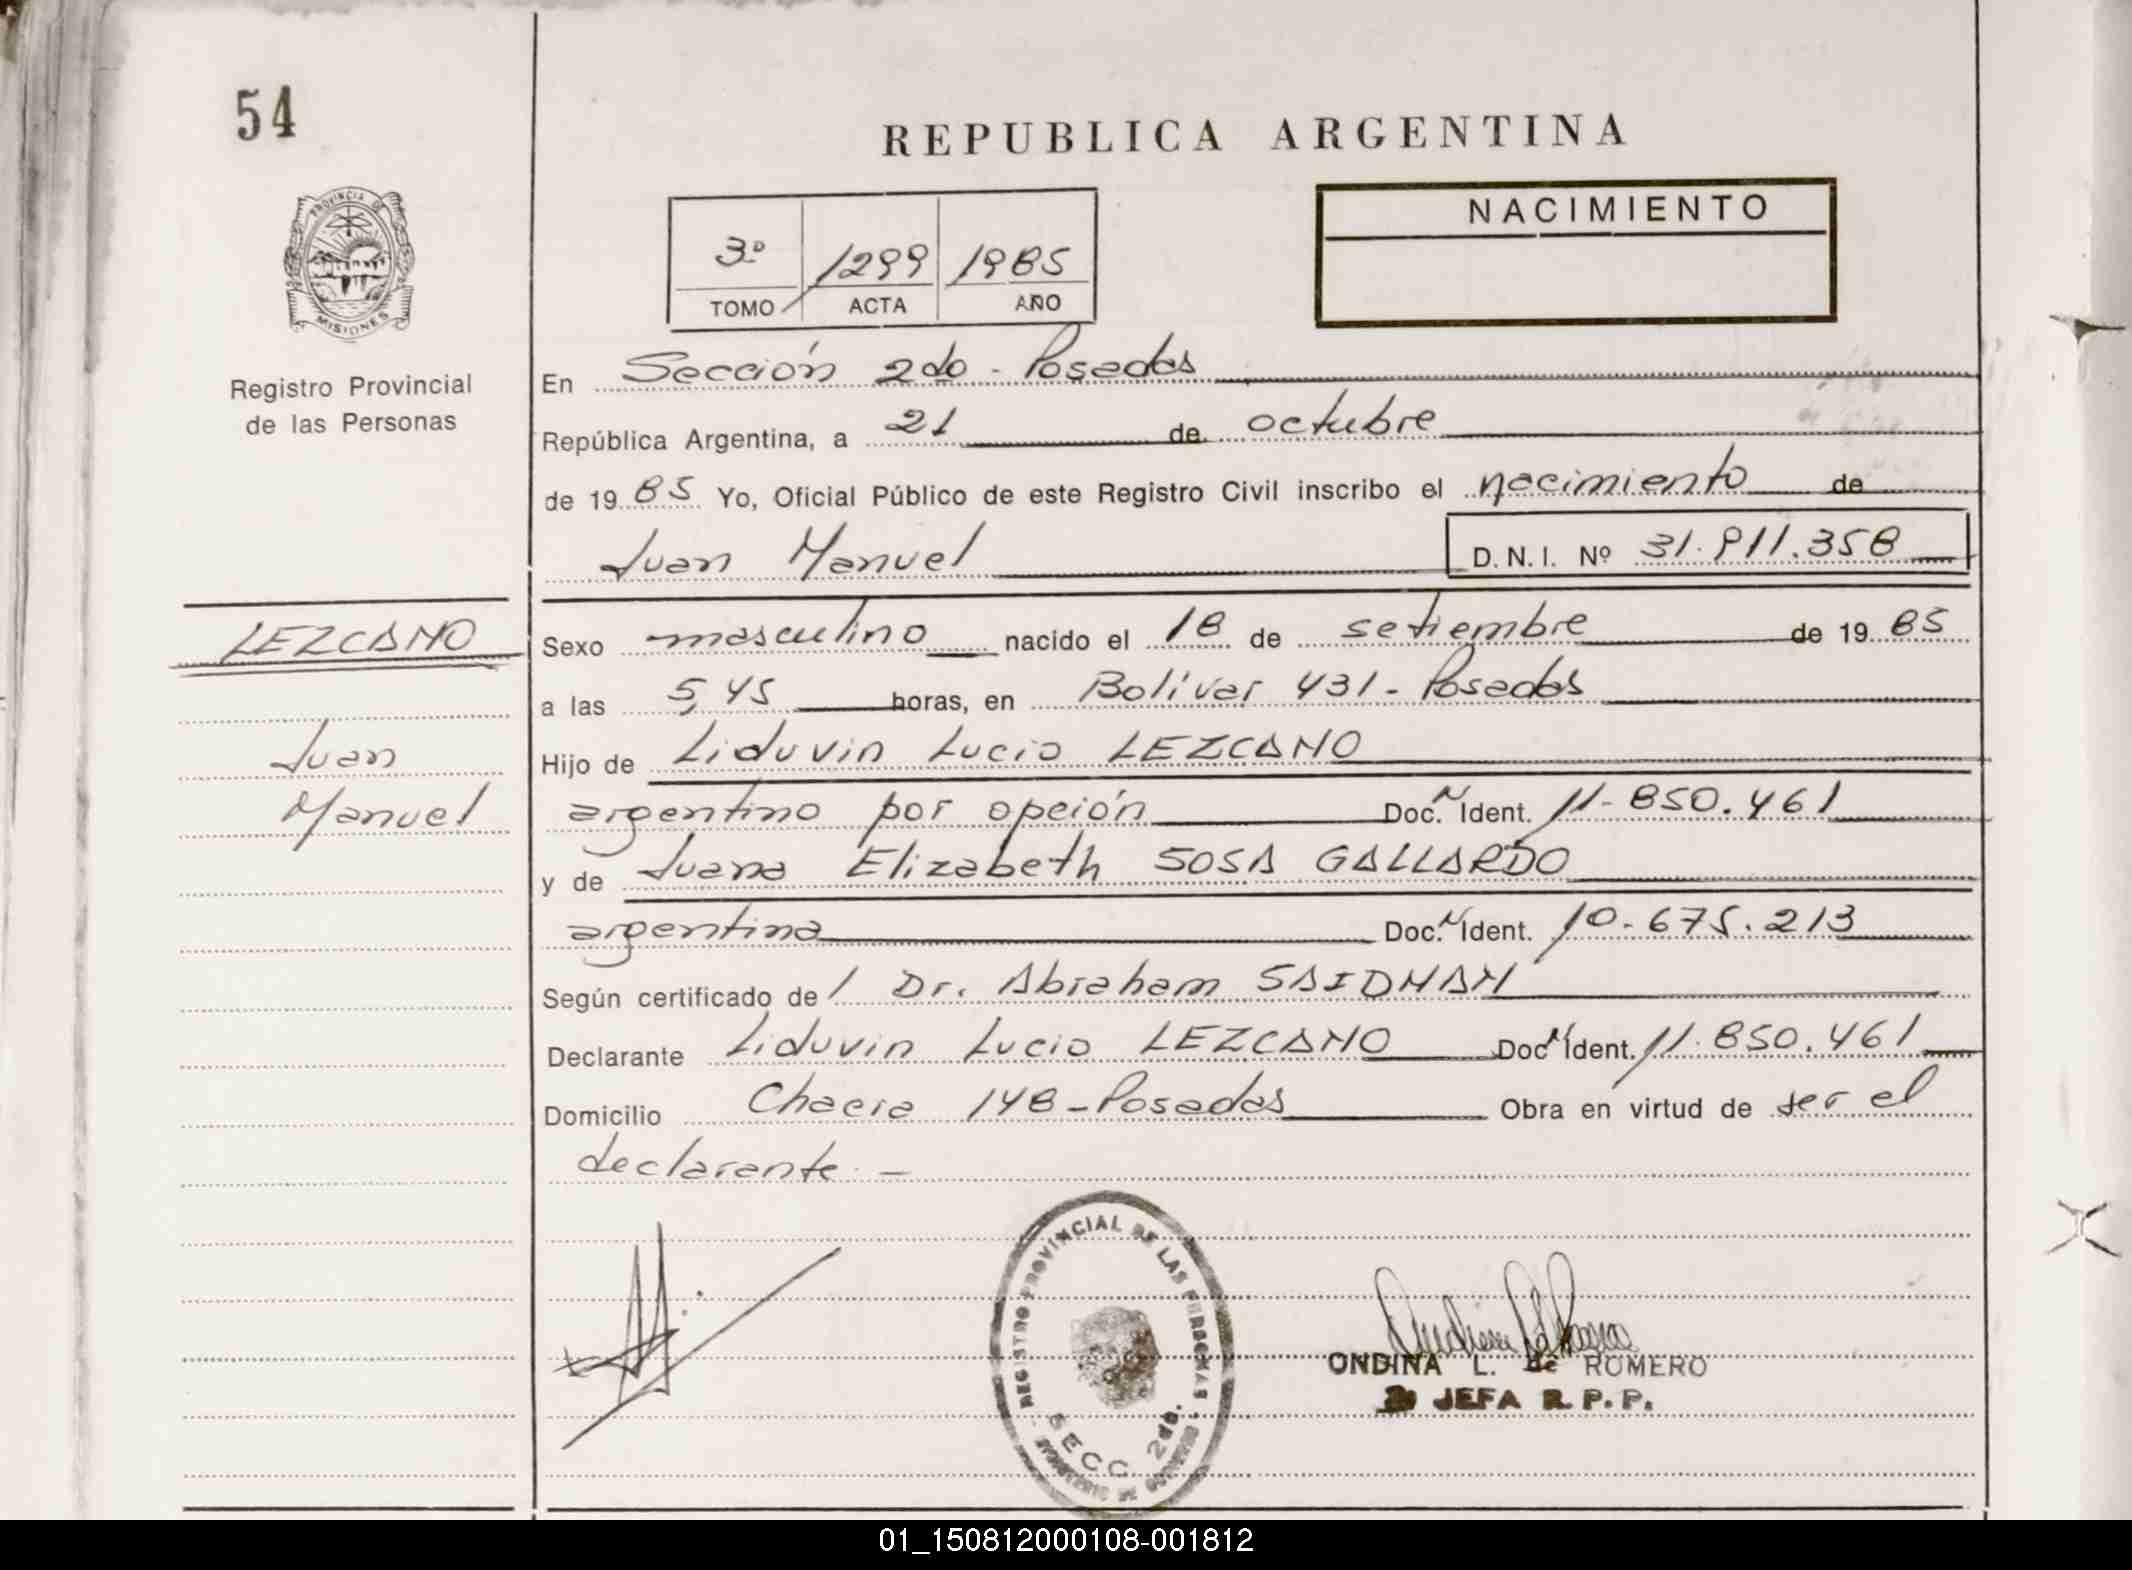 54
REPUBLICA ARGENTINA
NACIMIENTO
3º 1299 1985
TOMO ACTA AÑO
PROVINCIA DE MISIONES
Registro Provincial
de las Personas
En Sección 2da - Posadas
República Argentina, a 21 de octubre
de 1985 Yo, Oficial Público de este Registro Civil inscribo el nacimiento de
Juan Manuel D.N.I. Nº 31.911.358
LEZCANO
Juan
Manuel
Sexo masculino nacido el 18 de setiembre de 1985
a las 5,45 horas, en Bolívar 431 - Posadas
Hijo de Liduvin Lucio LEZCANO
argentino por opción Doc. N Ident. 11.850.461
y de Juana Elizabeth SOSA GALLARDO
argentina Doc. N Ident. 10.675.213
Según certificado de l Dr. Abraham SAIDMAN
Declarante Liduvin Lucio LEZCANO Doc N Ident. 11.850.461
Domicilio Chacra 148 - Posadas Obra en virtud de ser el
declarante. -
REGISTRO PROVINCIAL DE LAS PERSONAS
SECC. 2da.
MINISTERIO DE GOBIERNO
ONDINA L. de ROMERO
JEFA R.P.P.
01_150812000108-001812